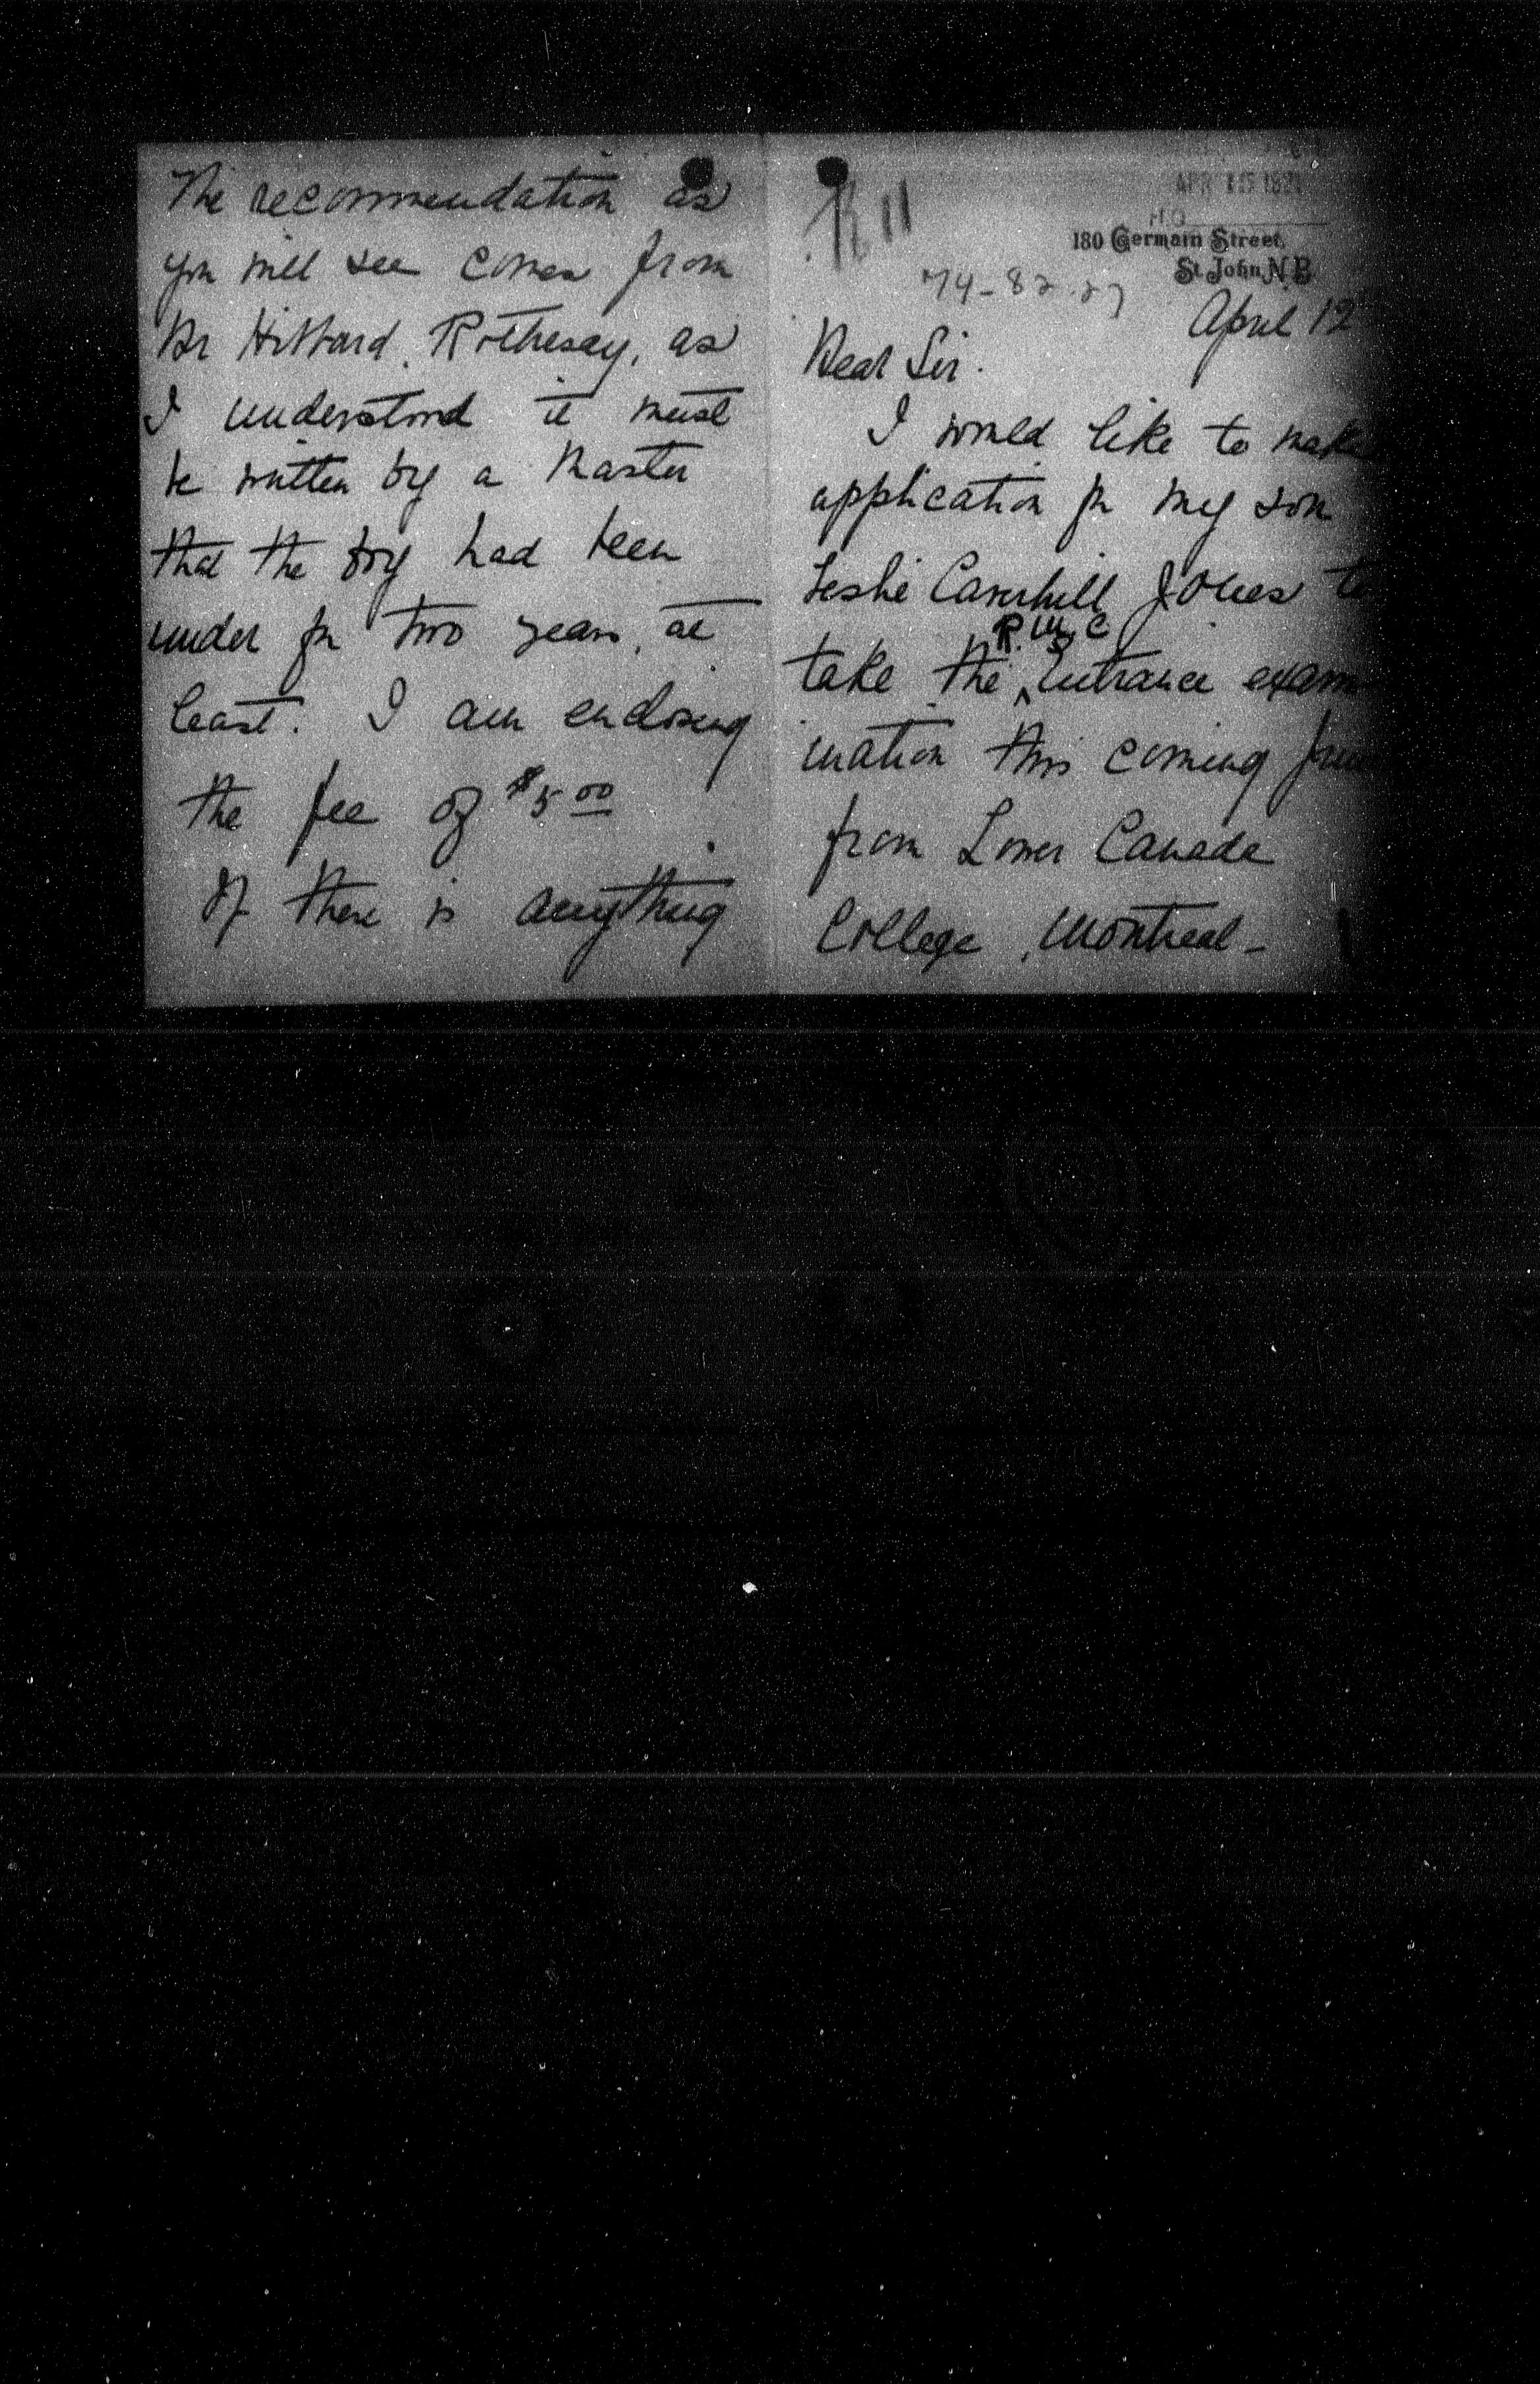 APR 15 1921
180 Germain Street,
St. John, N.B.
74-82-27
April 12
Dear Sir.
I would like to make
application for my son
Leslie Caverhill Jones to
take the R.M.C entrance exam
ination this coming June
from Lower Canada
College, Montreal -
The recommendation as
you will see comes from
Dr Hibbard, Rothesay, as
I understood it must
be written by a Master
that the boy had been
under for two years, at
least. I am enclosing
the fee of $5.00
If there is anything